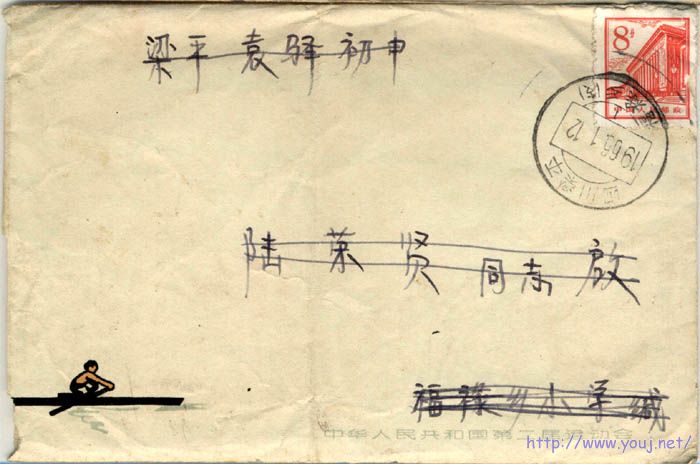 梁平袁驿初中
8分
中国人民邮政
四川梁平
1966.1.12
陆荣贤同志啟
福禄乡小学缄
中华人民共和国第二届运动会
http://www.youj.net/